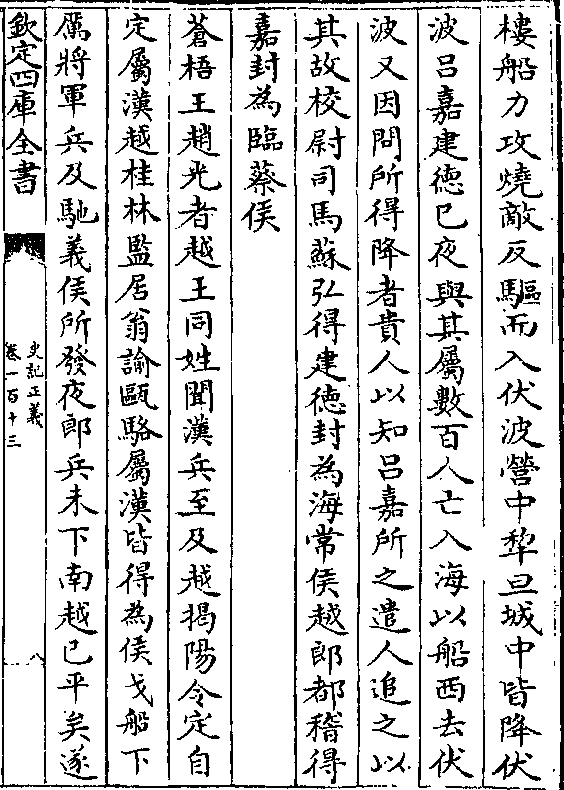 樓船力攻燒敵反驅而入伏波營中犂旦城中皆降伏
波呂嘉建德已夜與其屬數百人亡入海以船西去伏
波又因問所得降者貴人以知呂嘉所之遣人追之以
其故校尉司馬蘇弘得建徳封為海常侯越郎都稽得
嘉封為臨蔡侯
蒼梧王趙光者越王同姓聞漢兵至及越揭陽令定自
定屬漢越桂林監居翁諭甌駱屬漢皆得為侯戈船下
厲將軍兵及馳義侯所發夜郎兵未下南越已平矣遂
欽定四庫全書
史記正義
卷一百十三
八